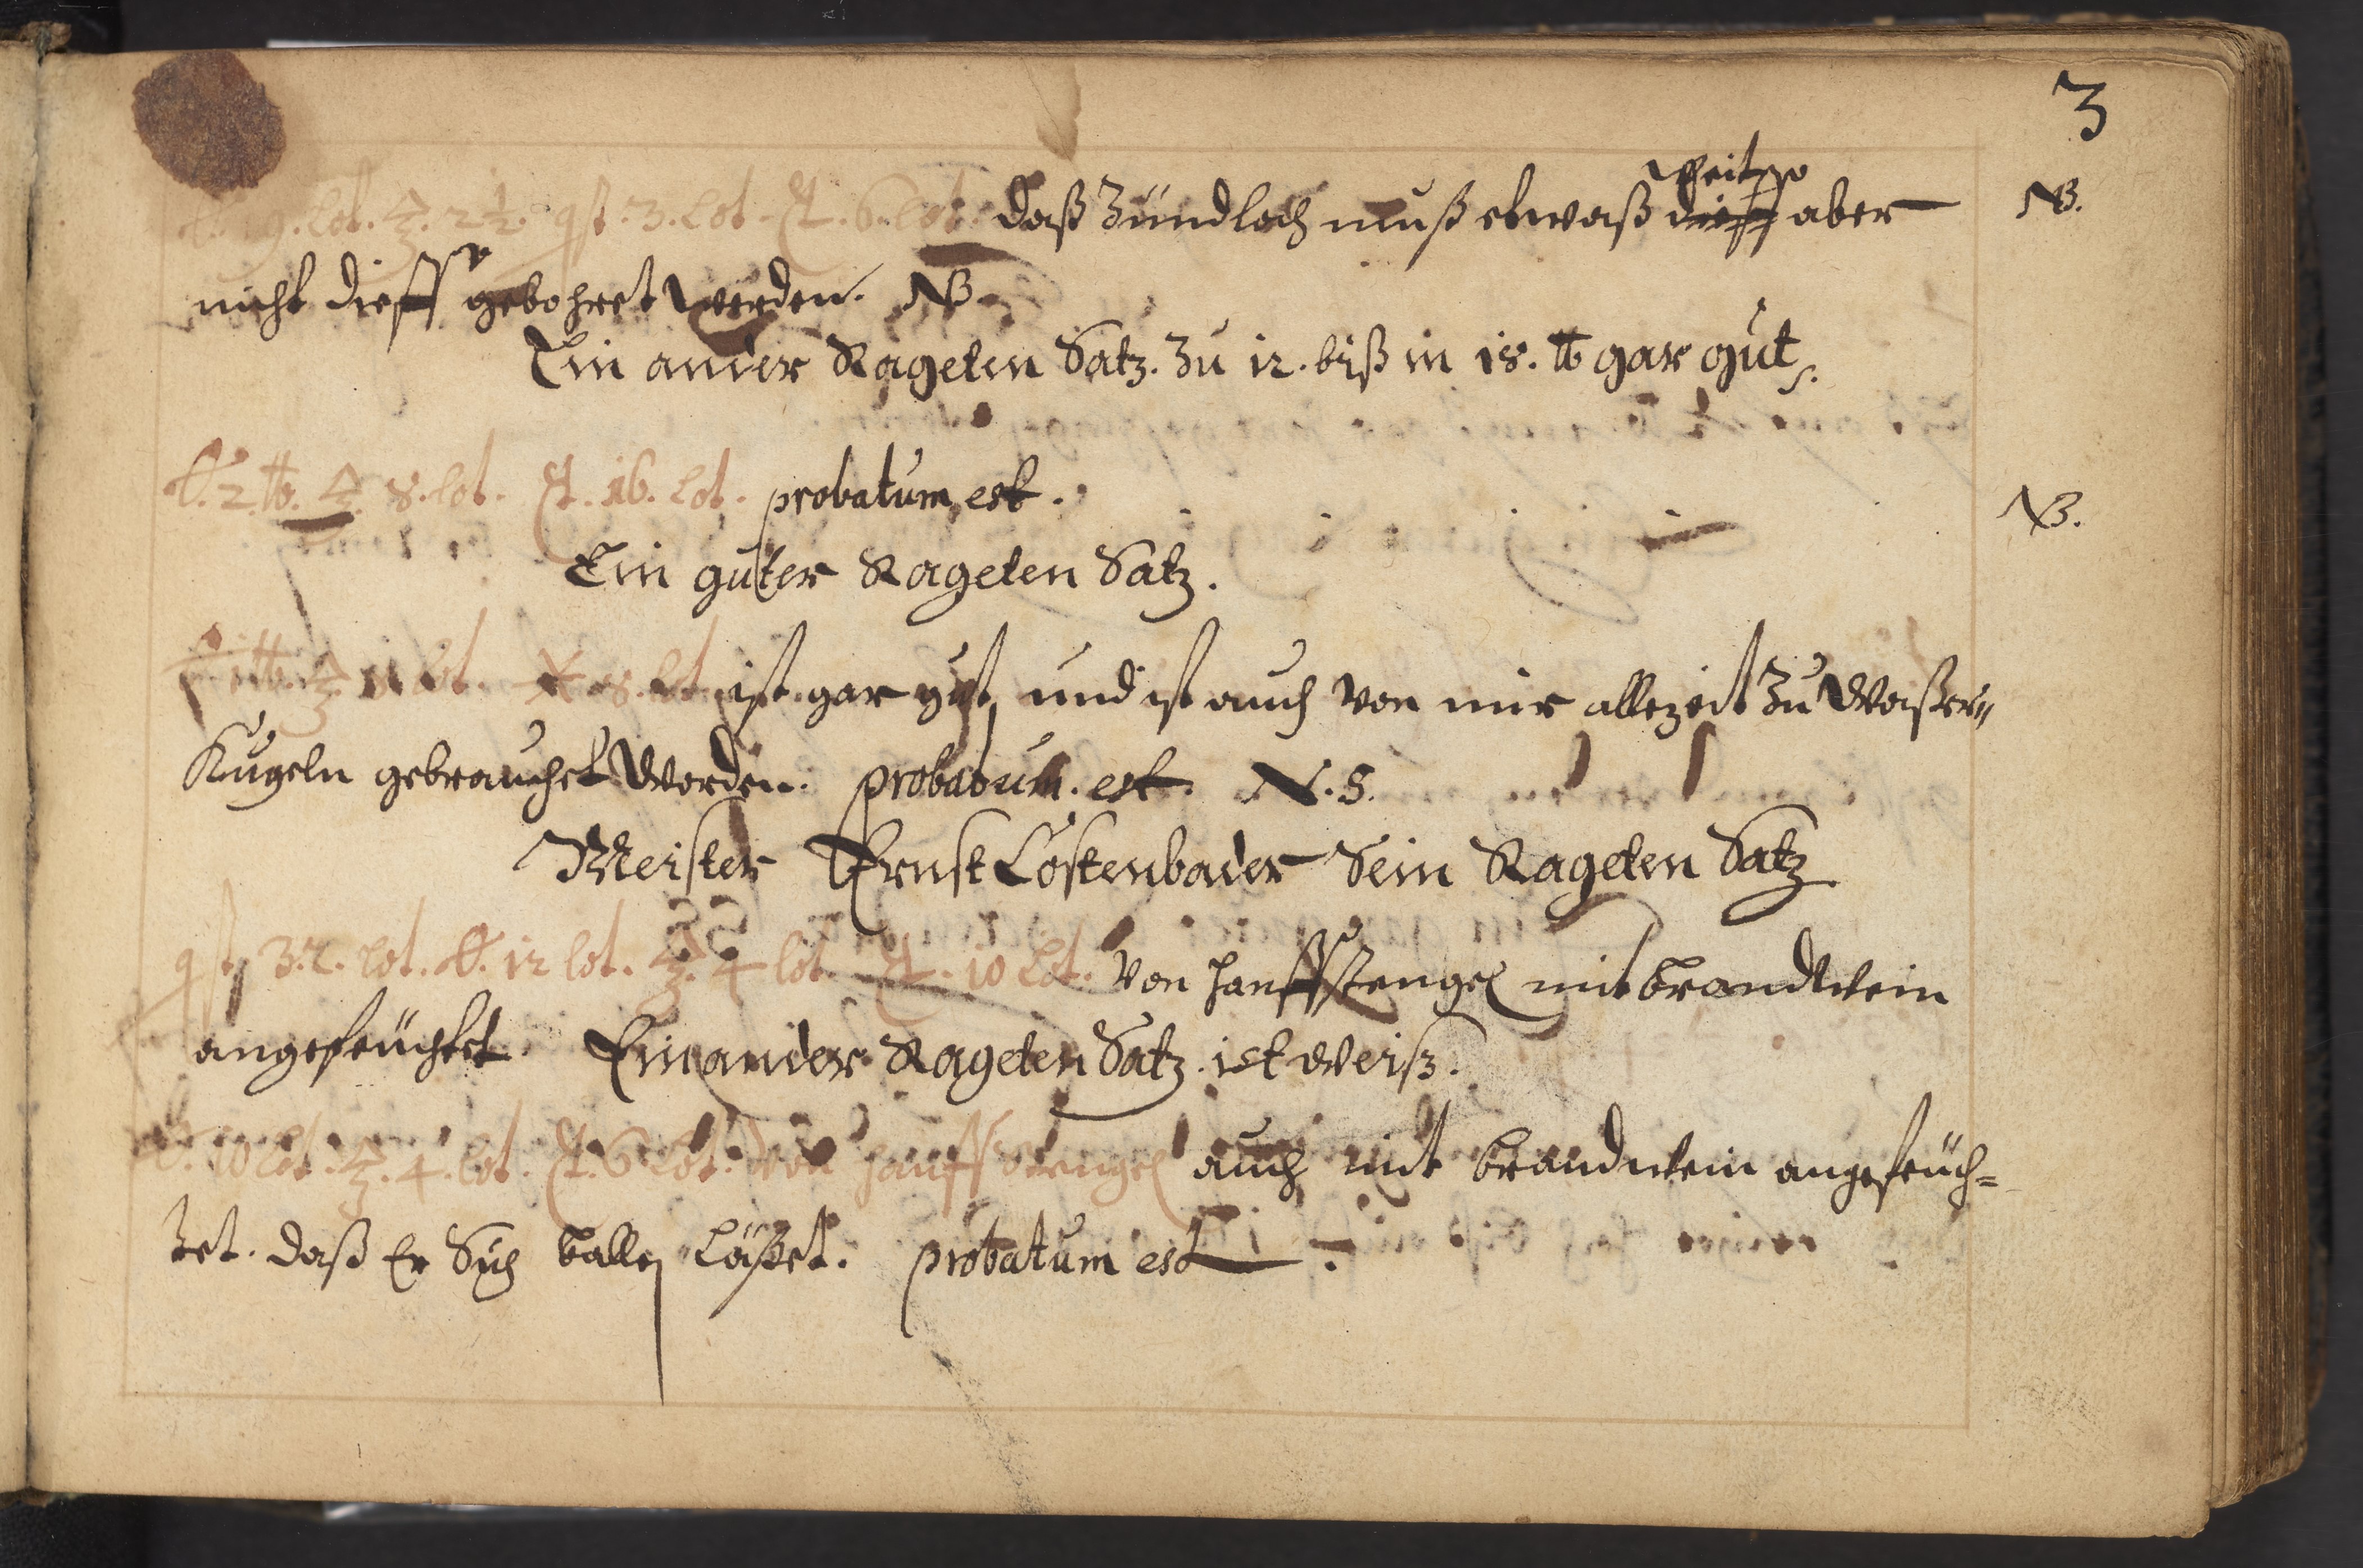 3
weit
9. lot. 🜍. 2½. qst. 3. lot. 6. lot. daß Zündloch muß etwaß dieff aber NB.
nicht dieff gebohret werden. NB.
Ein ander Rageten Satz. Zu 12. biß in 18. ℔ gar gut.
2. ℔. 🜍. 8. lot. 16. lot. probatum est. NB.
Ein guter Rageten Satz.
℔. 🜍. lot. 8. lot ist gar gut, und ist auch von mir allezeit zu Waßer〃
Kugeln gebrauchet worden. probatum est. N.B.
Meister Ernst Lostenbader Sein Rageten Satz
qst 32. lot. 12 lot. 🜍. 4 lot. 10 lot. von hanffstengel mit brandtwein
angefeuchtet. Ein ander Rageten Satz. ist weiß.
10 lot. 🜍. 4. lot. 6 lot. von hanffstengel auch mit brandwein angefeuch=
tet. daß Er Sich ballen läßet. probatum est.